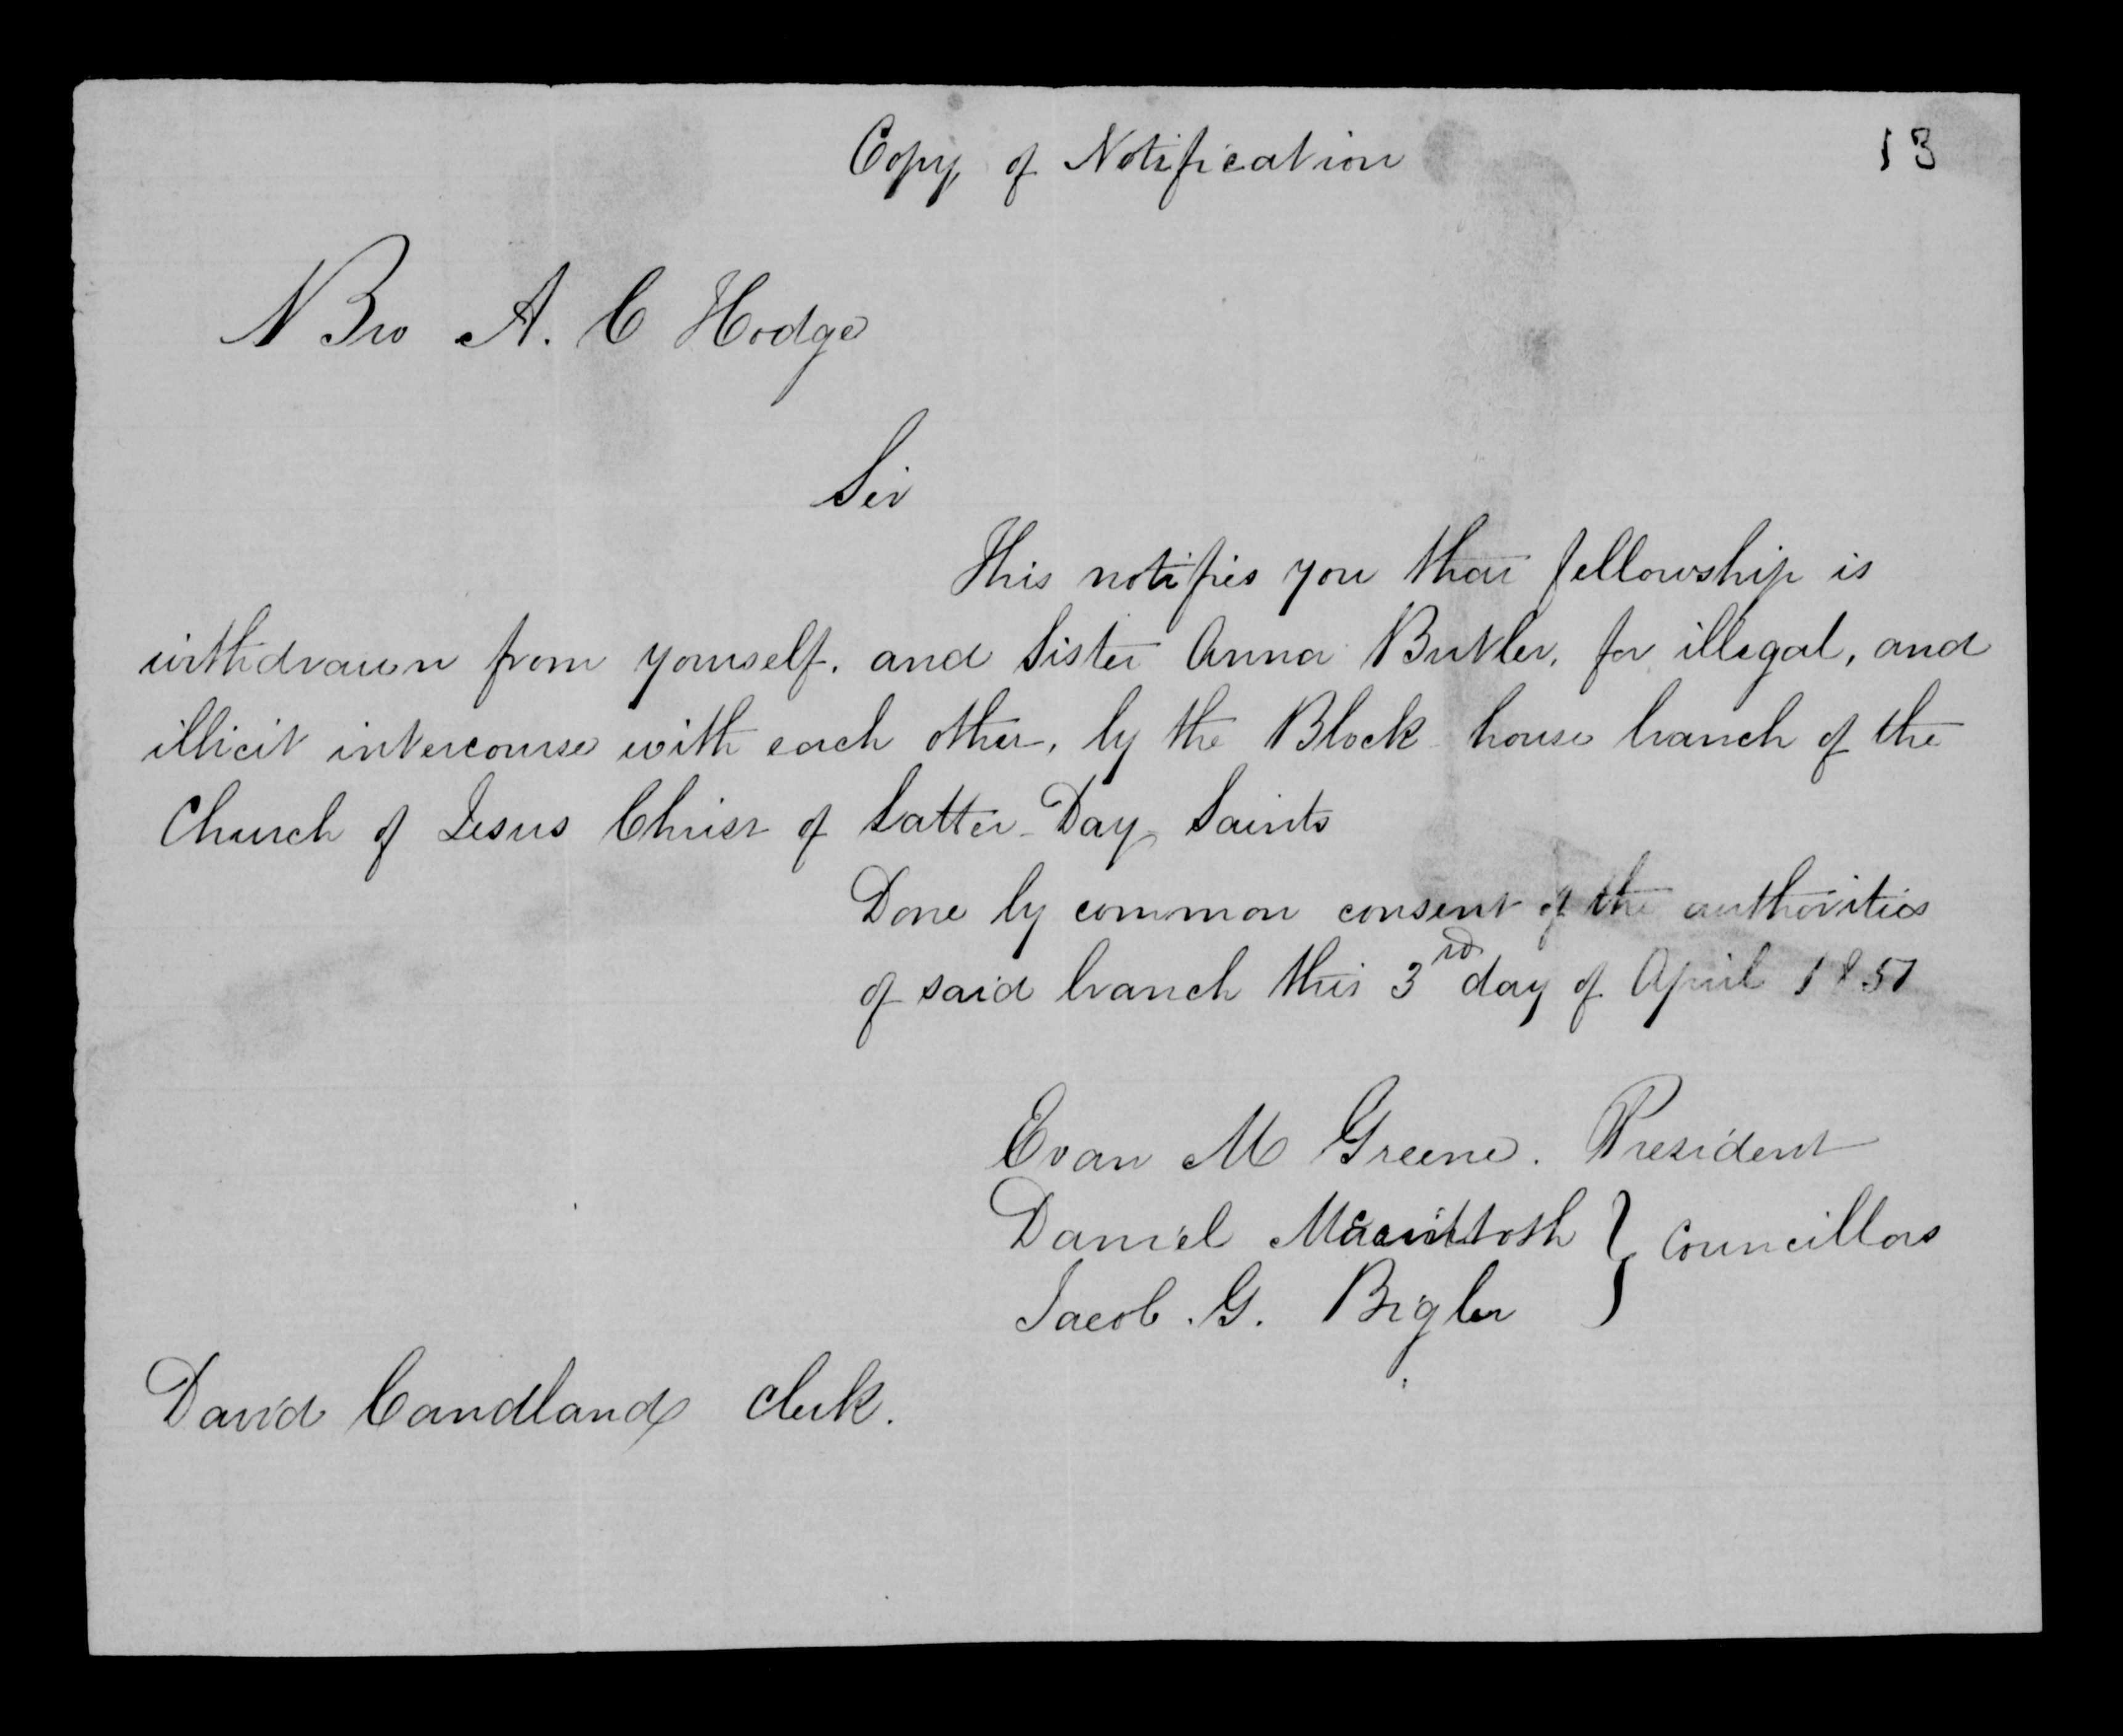 Copy of Notification
13
N Bro A. C Hodge
Sir
This notifies you that fellowship is
withdrawn from yourself. and Sister Anna Butler, for illegal, and
illicit intercourse with each other, by the Block house branch of the
Church of Jesus Christ of Latter-Day Saints
Done by common consent of the authorities
of said branch this 3rd day of April 1851
Evan M Greene. President
Daniel Macintosh } Councillors
Jacob. G. Bigler
David Candland Clerk.